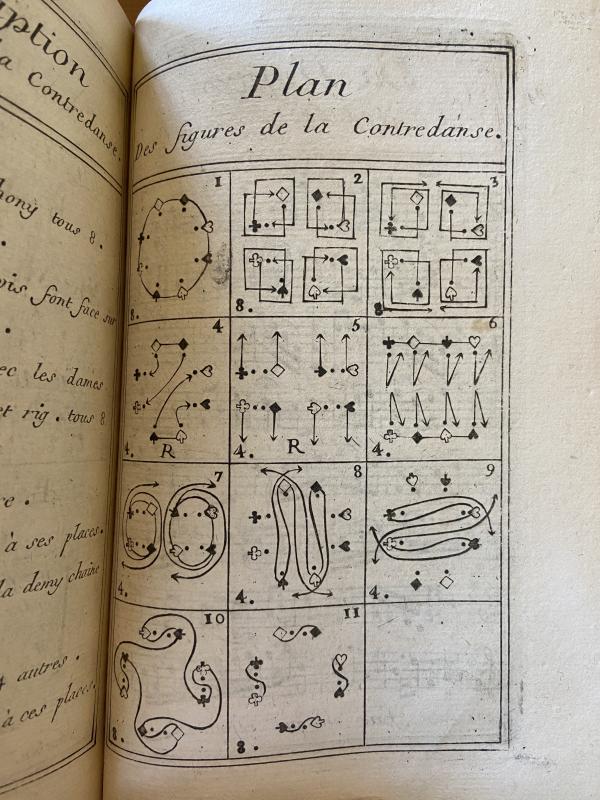 iption
la Contredanse.
hony tous 8.
vis font face sur
ec les dames
et rig. tous 8
re.
à ses places.
la demy chaîne
4 autres.
à ces places.
Plan
Des figures de la Contredanse.
1
8.
2
8.
3
8
4
4. R
5
4. R
6
4.
7
4.
8
4.
9
4.
10
8.
11
8.